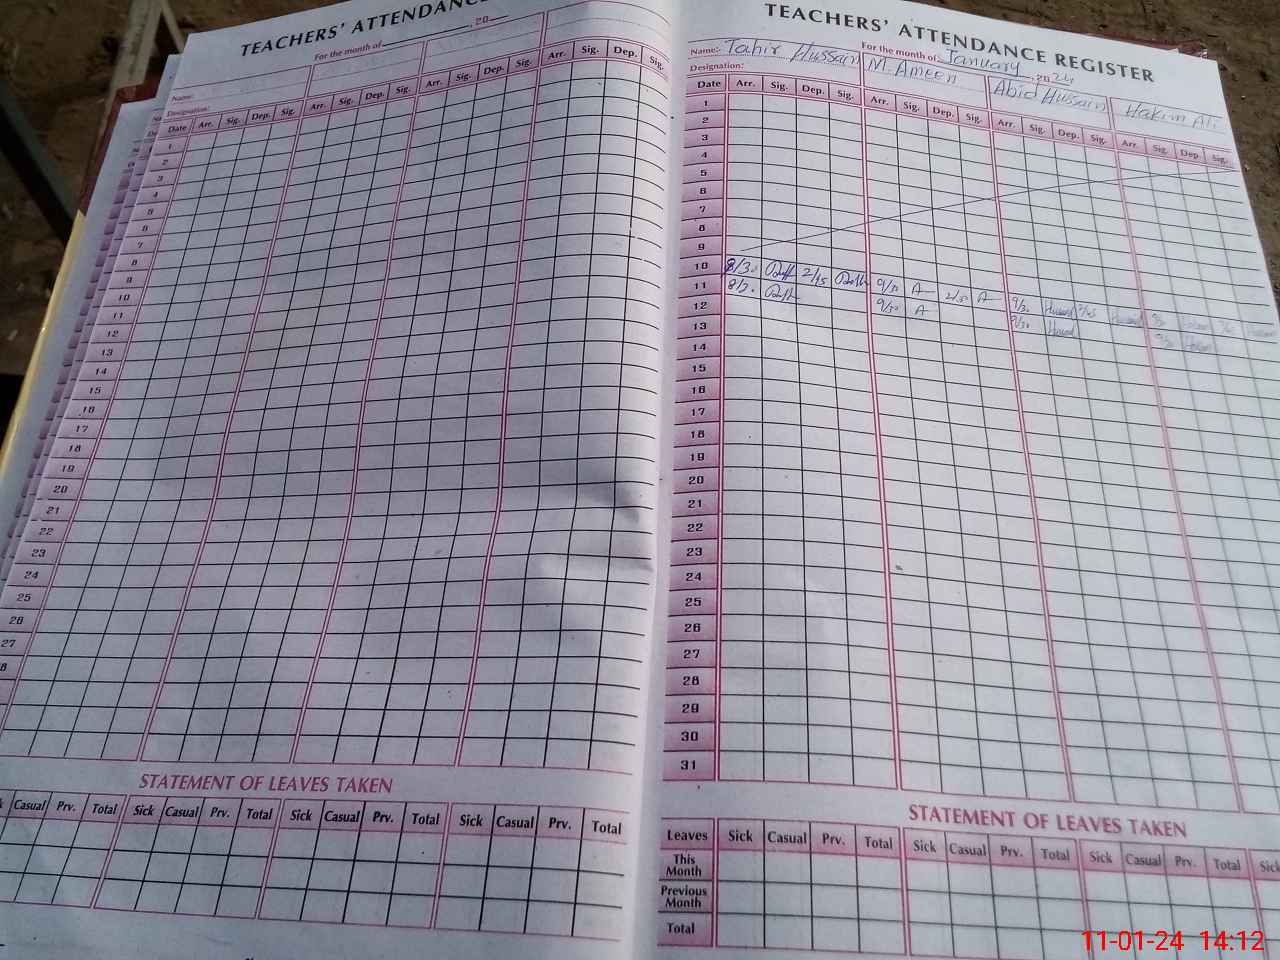 TEACHERS' ATTENDANCE
For the month of , 20
Name:
Designation:
Date Arr. Sig. Dep. Sig. Arr. Sig. Dep. Sig. Arr. Sig. Dep. Sig. Arr. Sig. Dep. Sig.
1
2
3
4
5
6
7
8
9
10
11
12
13
14
15
16
17
18
19
20
21
22
23
24
25
26
27
8
STATEMENT OF LEAVES TAKEN
k Casual Prv. Total Sick Casual Prv. Total Sick Casual Prv. Total Sick Casual Prv. Total
TEACHERS' ATTENDANCE REGISTER
For the month of January , 2024
Name:- Tahir Hussain M. Ameen Abid Hussain Hakim Ali
Designation:
Date Arr. Sig. Dep. Sig. Arr. Sig. Dep. Sig. Arr. Sig. Dep. Sig. Arr. Sig. Dep. Sig.
1
2
3
4
5
6
7
8
9
10 8/30 2/45 9/30 A 2/45 A 9/30 2/45
11 9/30 A 9/30
12
13
14
15
16
17
18
19
20
21
22
23
24
25
26
27
28
29
30
31
STATEMENT OF LEAVES TAKEN
Leaves Sick Casual Prv. Total Sick Casual Prv. Total Sick Casual Prv. Total Sick
This Month
Previous Month
Total
11-01-24 14:12